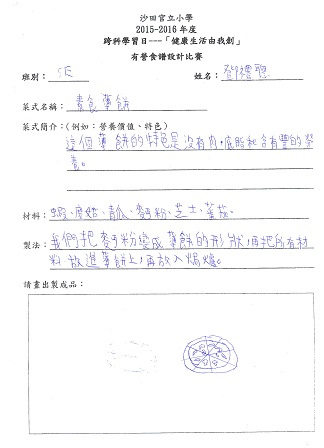 沙田官立小學
2015-2016 年度
跨科學習日---「健康生活由我創」
有營食譜設計比賽
班別： 5E 姓名： 鄧禮聰
菜式名稱： 素食薄餅
菜式簡介：（例如：營養價值、特色）
這個薄餅的特色是沒有肉，底脂和含有豐的營
養。
材料： 蝦、麽菇、青瓜、麥粉、芝士、蕃茄。
製法： 我們把麥粉變成薄餅的形狀，再把所有材
料放進薄餅上，再放入焗爐。
請畫出製成品：